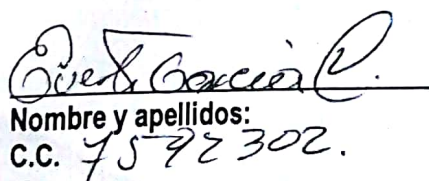 García C.
Nombre y apellidos:
C.C. 7592302.